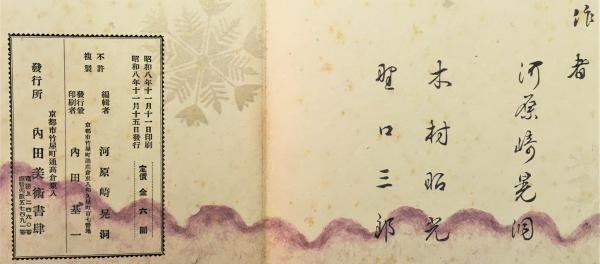 作者
河原崎晃洞
木村昭光
野口三郎
昭和八年十一月十一日印刷
昭和八年十一月十五日發行
定價金六圓
不許複製
編輯者 河原崎晃洞
發行兼印刷者 內田基一
發行所
京都市竹屋町通高倉東入
內田美術書肆